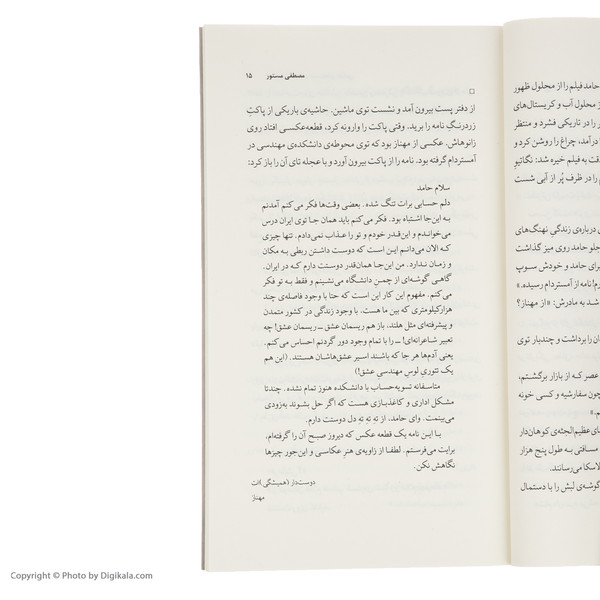 مصطفی مستور ۱۵
از دفتر پست بیرون آمد و نشست توی ماشین. حاشیه‌ی باریکی از پاکتِ
زردرنگِ نامه را برید. وقتی پاکت را وارونه کرد، قطعه‌عکسی افتاد روی
زانوهاش. عکسی از مهناز بود که توی محوطه‌ی دانشکده‌ی مهندسی در
آمستردام گرفته بود. نامه را از پاکت بیرون آورد و با عجله تای آن را باز کرد:
سلام حامد
دلم حسابی برات تنگ شده. بعضی وقت‌ها فکر می‌کنم آمدنم
به این‌جا اشتباه بود. فکر می‌کنم باید همان جا توی ایران درس
می‌خواندم و این‌قدر خودم و تو را عذاب نمی‌دادم. تنها چیزی
که الان می‌دانم این است که دوست داشتن ربطی به مکان
و زمان ندارد. من این‌جا همان‌قدر دوستت دارم که در ایران.
گاهی گوشه‌ای از چمنِ دانشگاه می‌نشینم و فقط به تو فکر
می‌کنم. مفهوم این کار این است که حتا با وجود فاصله‌ی چند
هزارکیلومتری که بین ما هست، با وجود زندگی در کشور متمدن
و پیشرفته‌ای مثل هلند، باز هم ریسمان عشق ـ ریسمان عشق! چه
تعبیر شاعرانه‌ای! ـ را با تمام وجود دور گردنم احساس می‌کنم.
یعنی آدم‌ها هر جا که باشند اسیر عشق‌هاشان هستند. (این هم
یک تئوریِ لوسِ مهندسیِ عشق!)
متاسفانه تسویه‌حساب با دانشکده هنوز تمام نشده. چندتا
مشکل اداری و کاغذبازی هست که اگر حل بشوند به‌زودی
می‌بینمت. وای حامد، از تهِ تهِ تهِ دل دوستت دارم.
با این نامه یک قطعه عکس که دیروز صبح آن را گرفته‌ام،
برایت می‌فرستم. لطفا از زاویه‌ی هنرِ عکاسی و این‌جور چیزها
نگاهش نکن.
دوست‌دار (همیشگی)ات
مهناز
حامد فیلم را از محلول ظهور
از محلول آب و کریستال‌های
را در تاریکی فشرد و منتظر
درآمد، چراغ را روشن کرد و
دقت به فیلم خیره شد: نگاتیو
را در ظرف پُر از آبی شست
درباره‌ی زندگیِ نهنگ‌های
جلو حامد روی میز گذاشت
برای حامد و خودش سوپ
نامه از آمستردام رسیده.»
شد به مادرش: «از مهناز؟
را برداشت و چندبار توی
عصر که از بازار برگشتم،
چون سفارشیه و کسی خونه
عظیم‌الجثه‌ی کوهان‌دار
مسافتی به طول پنج هزار
می‌رسانند.
گوشه‌ی لبش را با دستمال
Copyright © Photo by Digikala.com